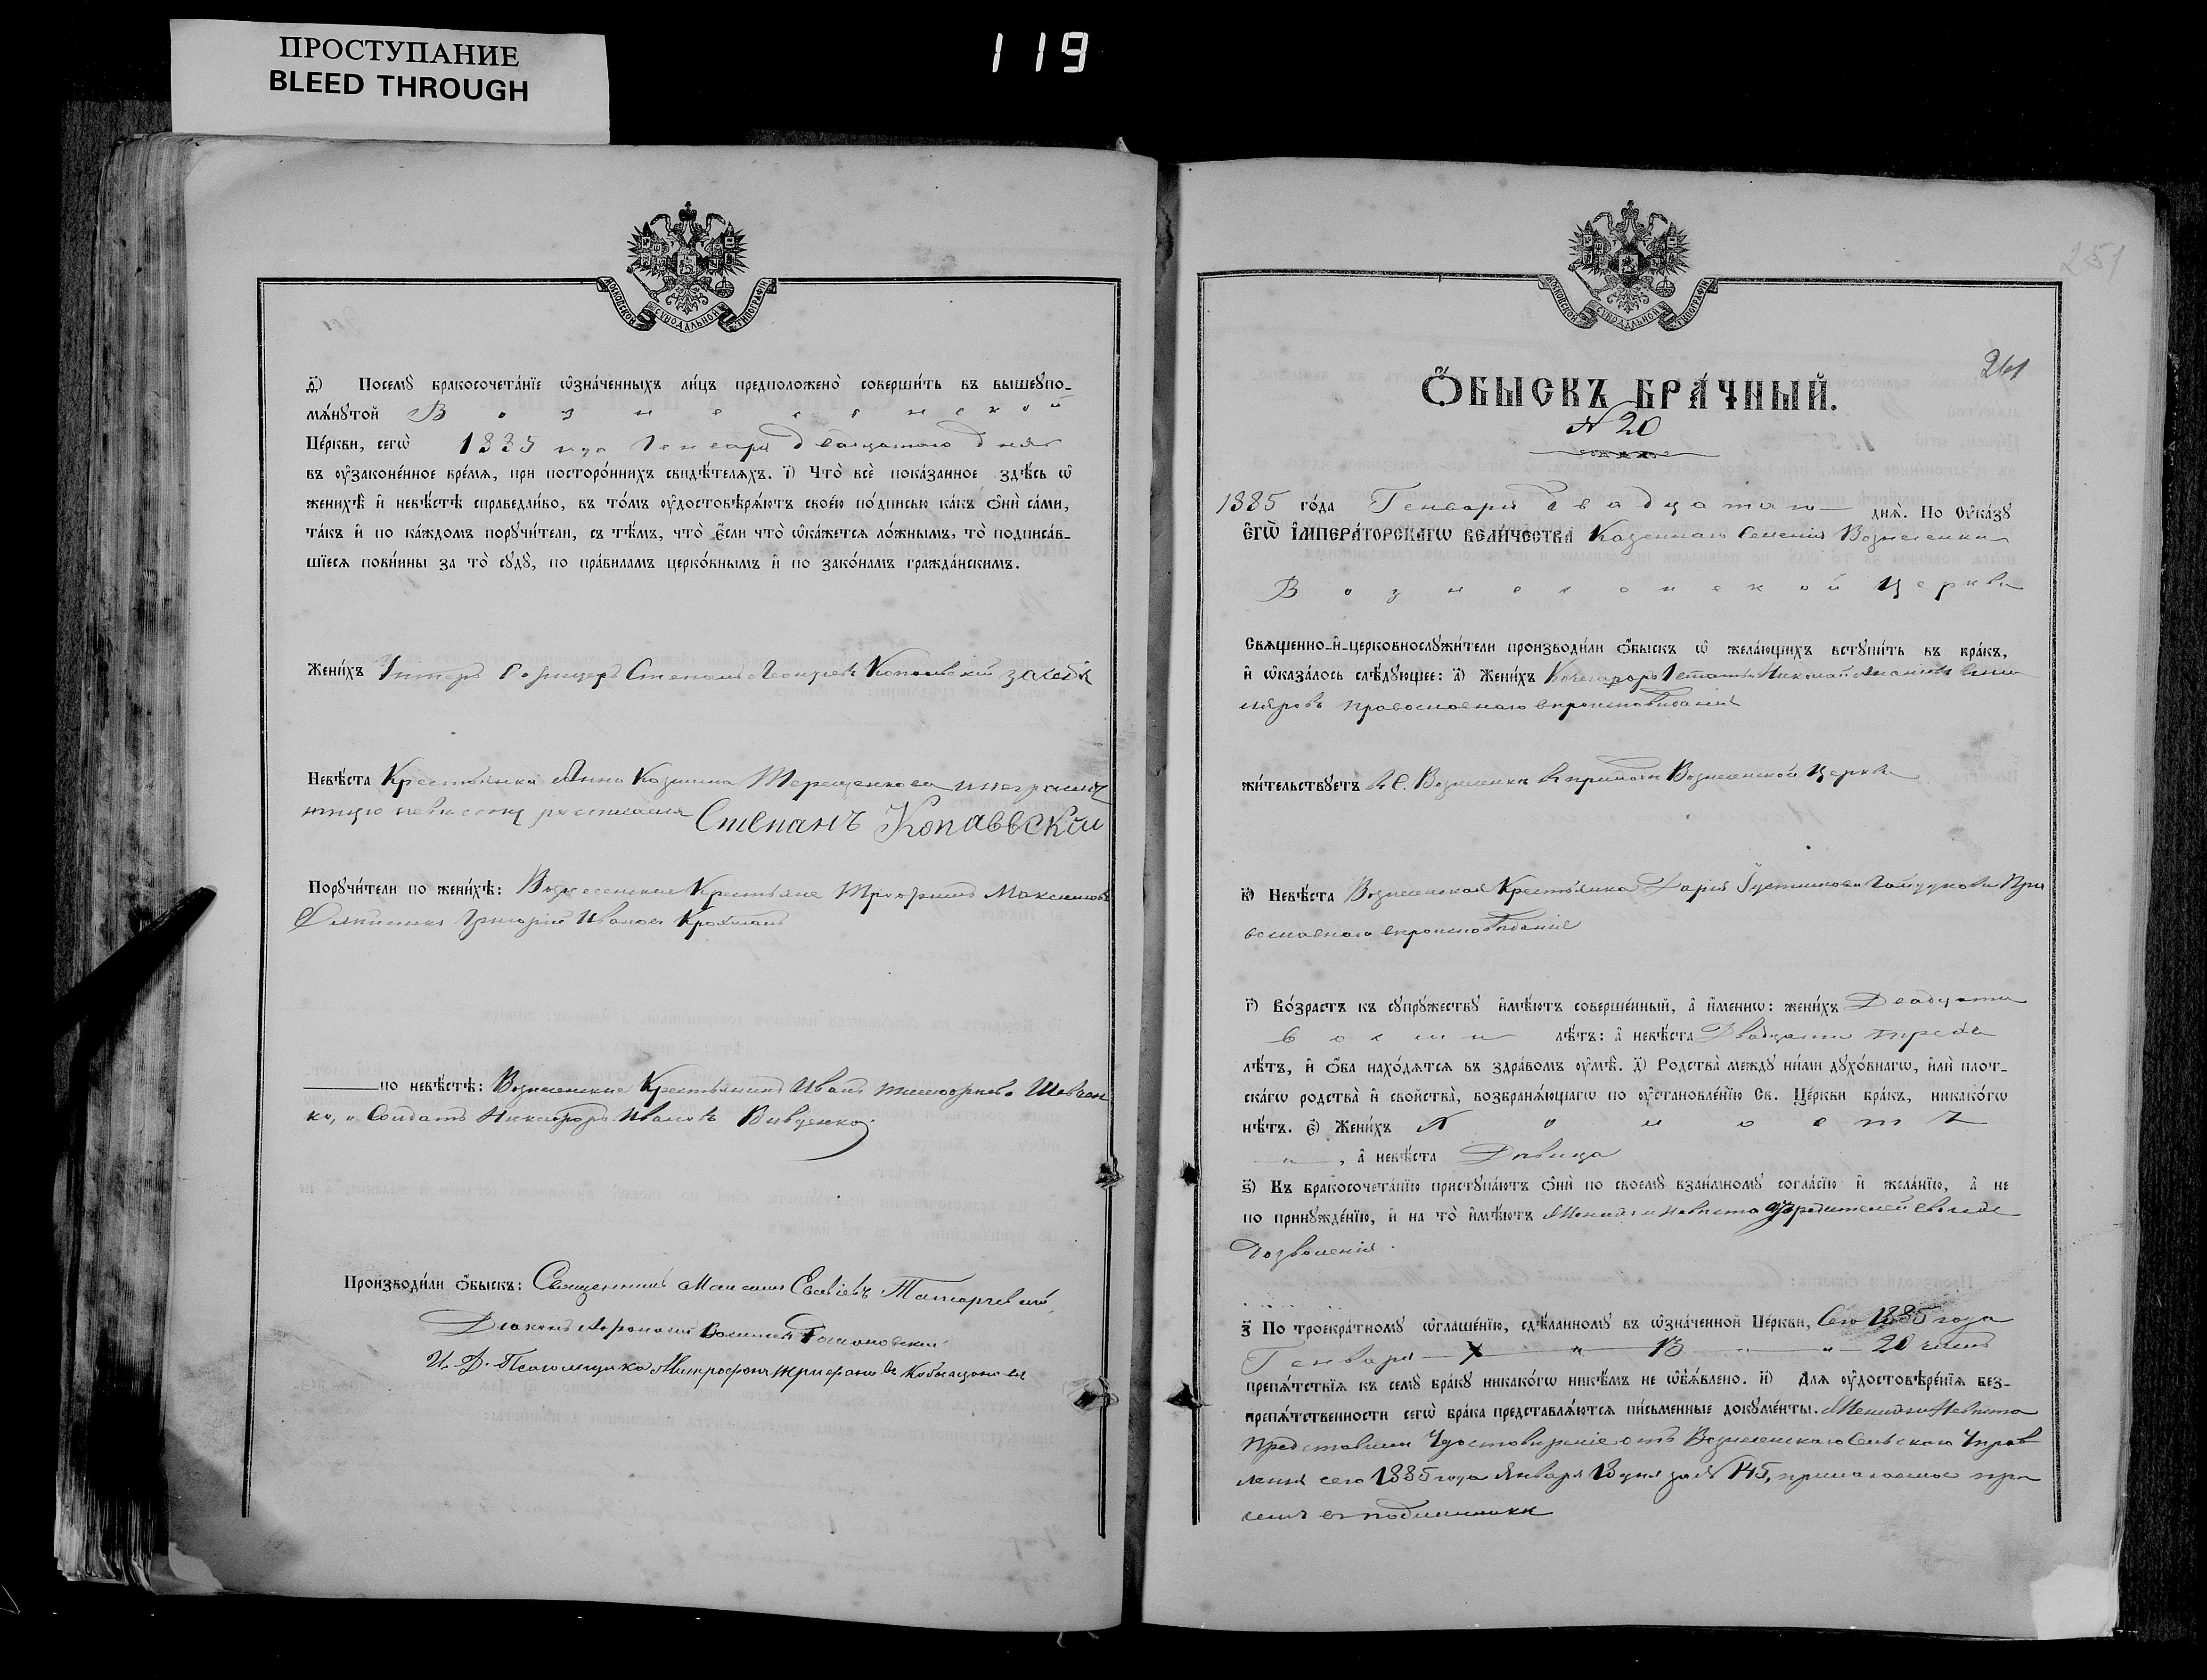 ПРОСТУПАНИЕ
BLEED THROUGH
119
МОСКОВСКОЙ СѴНОДАЛЬНОЙ ТИПОГРАФІИ
ѳ҃) Посемꙋ бракосочета́нїе ѡ҆зна́ченныхъ ли́цъ предположено̀ соверши́ть въ вышеꙋпо-
мѧ́нꙋтой Вознесенской
Це́ркви, сегѡ̀ 1885 года Генваря двадцатаго дня
въ ᲂу҆законе́нное вре́мѧ, при посторо́ннихъ свидѣ́телѧхъ. і҃) Что̀ всѐ пока́занное здѣ́сь ѡ҆
женихѣ̀ и҆ невѣ́стѣ справедли́во, въ то́мъ ᲂу҆достовѣрѧ́ютъ свое́ю по́дписью ка́къ ѻ҆нѝ са́ми,
та́къ и҆ по ка́ждомъ порꙋчи́тели, съ тѣ́мъ, что̀ є҆́сли что̀ ѡ҆ка́жетсѧ ло́жнымъ, то̀ подписа́в-
шїесѧ пови́нны за то̀ сꙋдꙋ̀, по пра́виламъ церко́внымъ и҆ по зако́намъ гражда́нскимъ.
Жени́хъ Унтеръ Офицеръ Степанъ Копаевскій за себя
Невѣ́ста Крестьянка Анна Козмина Терещенкова и неграмот
ную невесту росписался Степанъ Копаевскій
Порꙋчи́тели по женихѣ̀: Вознесенские Крестьяне Трофимъ Максимовъ
Григорій Ивановъ
по невѣ́стѣ: Вознесенские Крестьянинъ Иванъ Шевчен
ко, и Солдатъ Никифоръ Ивановъ Вивденко
Производи́ли ѻ҆́быскъ: Священникъ Татарчевскій
Діаконъ
И. Д. Псаломщика Митрофанъ Трифановъ
251
МОСКОВСКОЙ СѴНОДАЛЬНОЙ ТИПОГРАФІИ
261
Ѻ҆́БЫСКЪ БРА́ЧНЫЙ.
№ 20
1885 го́да Генваря двадцатаго днѧ̀. По Ꙋ҆ка́зꙋ
Є҆гѡ̀ И҆мпера́торскагѡ Вели́чества Казеннаго Селенія Вознесенки
Вознесенской Церкви
Свѧщенно-и҆-церковнослꙋжи́тели производи́ли ѻ҆́быскъ ѡ҆ жела́ющихъ встꙋпи́ть въ бра́къ,
и҆ ѡ҆каза́лось слѣ́дꙋющее: а҃) Жени́хъ Николай
православнаго вероисповеданія
жи́тельствꙋетъ въ С. Вознесенки въ приходе Вознесенской Церкви
в҃) Невѣ́ста Вознесенская Крестьянка Дарія Іустинова Гайдукова Пра
вославнаго вероисповеданія
г҃) Во́зрастъ къ сꙋпрꙋ́жествꙋ и҆мѣ́ютъ соверше́нный, а҆ и҆́меннѡ: жени́хъ Двадцати
восми лѣ́тъ: а҆ невѣ́ста Двадцати
лѣ́тъ, и҆ ѻ҆́ба нахо́дѧтсѧ въ здра́вомъ ᲂу҆мѣ̀. д҃) Родства̀ междꙋ ни́ми дꙋхо́внагѡ, и҆лѝ плот-
ска́гѡ родства̀ и҆ сво́йства, возбранѧ́ющагѡ по ᲂу҆становле́нїю Св. Це́ркви бра́къ, никако́гѡ
нѣ́тъ. є҃) Жени́хъ Холостъ
, а҆ невѣ́ста Девица
ѕ҃) Къ бракосочета́нїю пристꙋпа́ютъ ѻ҆нѝ по своемꙋ̀ взаи́мномꙋ согла́сїю и҆ жела́нїю, а҆ не
по принꙋжде́нїю, и҆ на то̀ и҆мѣ́ютъ Женихъ и Невеста от родителей своихъ
Дозволенія.
з҃) По троекра́тномꙋ ѡ҆глаше́нїю, сдѣ́ланномꙋ въ ѡ҆зна́ченной Це́ркви, Сего 1885 года
Генваря 20 чиселъ
препѧ́тствїѧ къ семꙋ̀ бра́кꙋ никако́гѡ никѣ́мъ не ѡ҆б̾ѧ́влено. и҃) Длѧ ᲂу҆достовѣре́нїѧ без-
препѧ́тственности сегѡ̀ бра́ка представлѧ́ютсѧ пи́сьменные докꙋме́нты. Женихъ и Невеста
Представили Удостоверение отъ Вознесенскаго Сельскаго Управ
ленія сего 1885 года Января 18 дня за № 145, прилагаемое при
семъ въ подлиннике